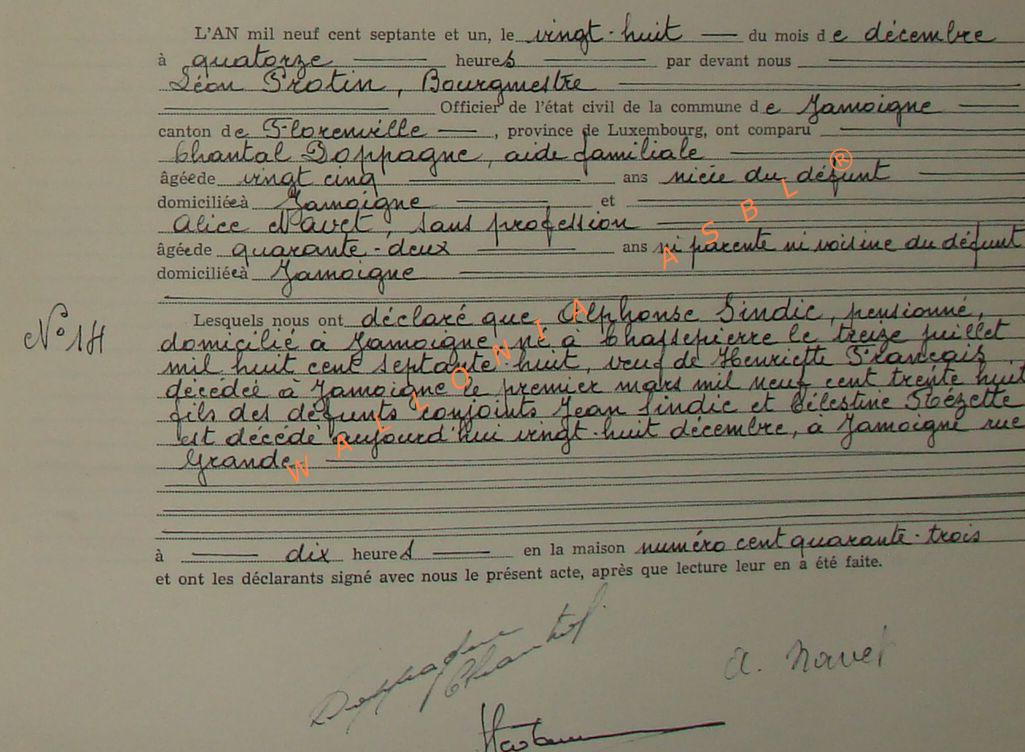 L'AN mil neuf cent septante et un, le vingt-huit du mois de décembre
à quatorze heures par devant nous
Léon Protin, Bourgmestre
Officier de l'état civil de la commune de Jamoigne
canton de Florenville, province de Luxembourg, ont comparu
Chantal Doppagne, aide familiale
âgée de vingt cinq ans nièce du défunt
domiciliée à Jamoigne et
Alice Navet, sans profession
âgée de quarante-deux ans ni parente ni voisine du défunt
domiciliée à Jamoigne
N° 14
Lesquels nous ont déclaré que Alphonse Sindic, pensionné,
domicilié à Jamoigne, né à Chassepierre le treize juillet
mil huit cent septante-huit, veuf de Henriette François,
décédée à Jamoigne le premier mars mil neuf cent trente huit
fils des défunts conjoints Jean Sindic et Célestine
est décédé aujourd'hui vingt-huit décembre, à Jamoigne rue
Grande
à dix heures en la maison numéro cent quarante-trois
et ont les déclarants signé avec nous le présent acte, après que lecture leur en a été faite.
Doppagne
Chantal
A. Navet
WALLONIA ASBL ®